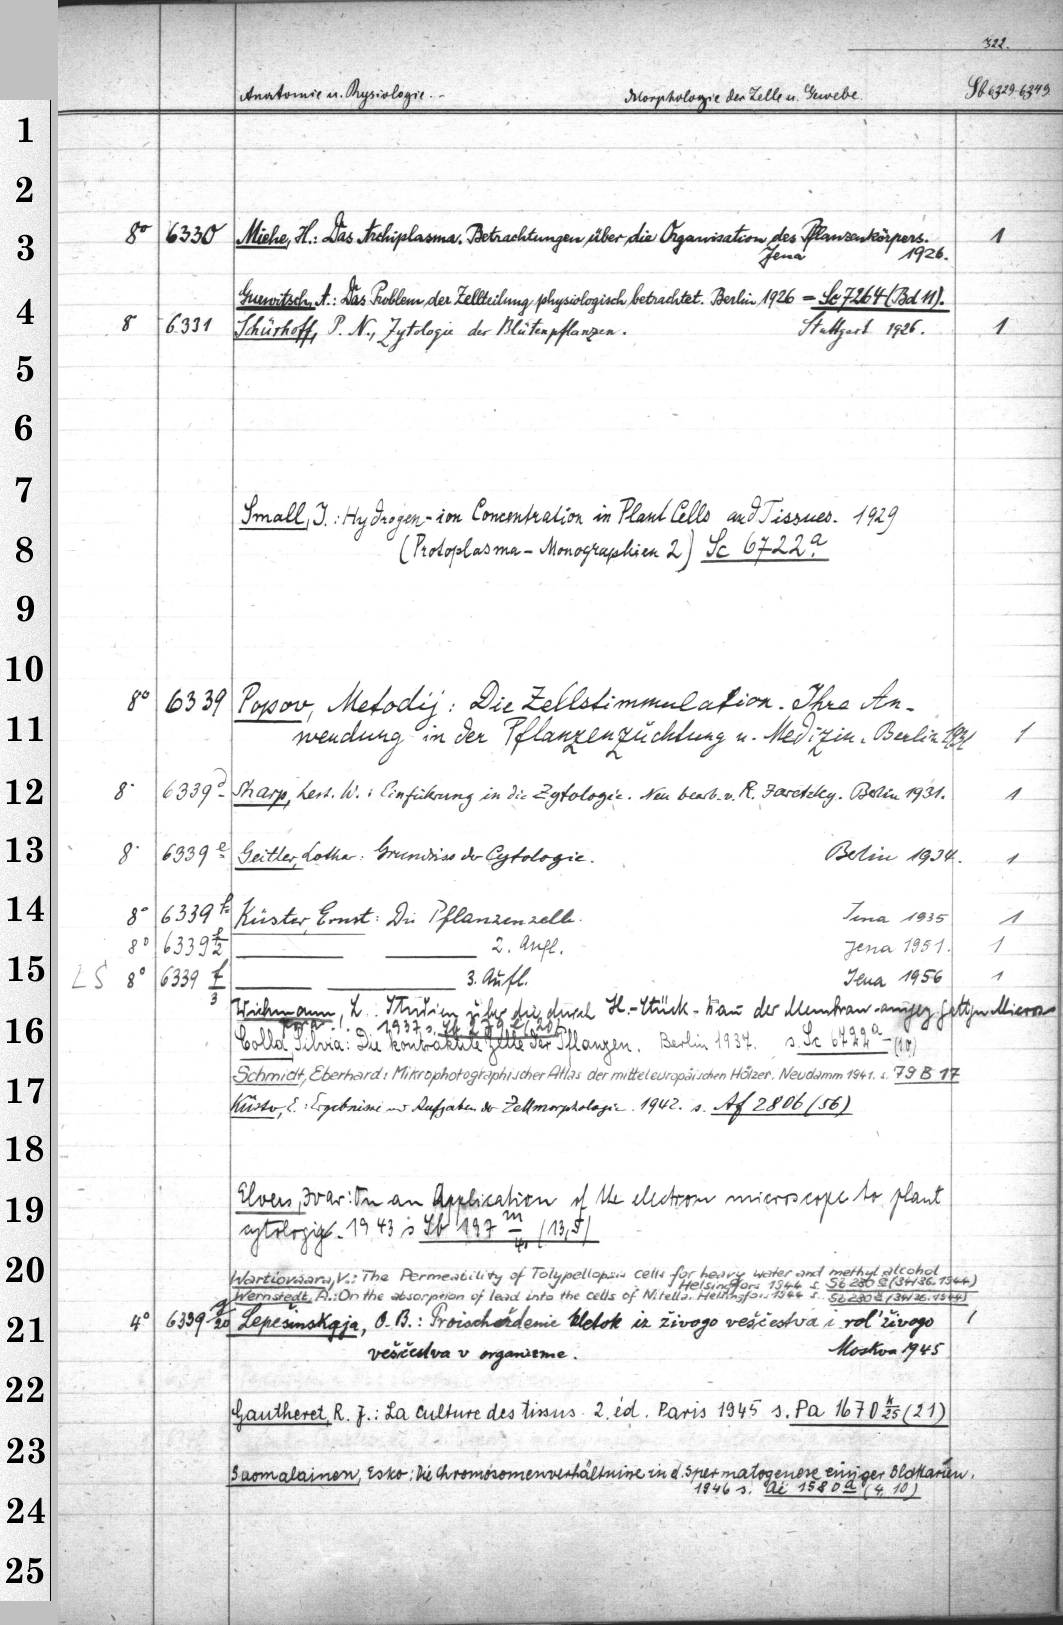 322.
Anatomie u. Physiologie. - Morphologie der Zelle u. Gewebe. Sb 6329-6349
1
2
3
8° 6330 Miehe, H.: Das Archiplasma. Betrachtungen über die Organisation des Pflanzenkörpers. 1
Jena 1926.
Gurwitsch, A.: Das Problem der Zellteilung physiologisch betrachtet. Berlin 1926 = Sc 7264 (Bd 11).
4
8 6331 Schürhoff, P. N., Zytologie der Blütenpflanzen. Stuttgart 1926. 1
5
6
7
Small, J.: Hydrogen-ion Concentration in Plant Cells and Tissues. 1929
8
(Protoplasma-Monographien 2) Sc 6722a.
9
10
8° 6339 Popov, Metodij: Die Zellstimmulation. Ihre An-
11
wendung in der Pflanzenzüchtung u. Medizin. Berlin 1931 1
12
8° 6339d Sharp, Lest. W.: Einführung in die Zytologie. Neu bearb. v. R. Jaretzky. Berlin 1931. 1
13
8° 6339e Geitler, Lothar: Grundriss der Cytologie. Berlin 1934. 1
14
8° 6339f Küster, Ernst: Die Pflanzenzelle. Jena 1935 1
8° 6339f/2 2. Aufl. Jena 1951. 1
15
LS 8° 6339 f/3 3. Aufl. Jena 1956 1
Studien über die durch H.-Stück-Bau der Membran
16
1937 s.
Colla, Silvia: Die kontraktile Zelle der Pflanzen. Berlin 1937. s. Sc 6722a (10)
Schmidt, Eberhard: Mikrophotographischer Atlas der mitteleuropäischen Hölzer. Neudamm 1941. s. 79 B 17
17
Küster, E.: Ergebnisse und Aufgaben der Zellmorphologie. 1942. s. Af 2806 (56)
18
Elvers, Ivar: On an Application of the electron microscope to plant
19
cytology. 1943 s Sb 197 m/4. (13,5)
20
Wartiovaara, V.: The Permeability of Tolypellopsis cells for heavy water and methyl alcohol
Helsingfors 1944 s. Sb 280 e (34/36. 1944)
Wernstedt, A.: On the absorption of lead into the cells of Nitella. Helsingfors 1944 s. Sb 280 e (34/36. 1944)
21
4° 6339 g/20 Lepešinskaja, O. B.: Proischoždenie kletok iz živogo veščestva i rol' živogo 1
veščestva v organizme. Moskva 1945
22
Gautheret, R. J.: La culture des tissus. 2. éd. Paris 1945 s. Pa 1670 k/25 (21)
23
Suomalainen, Esko: Die Chromosomenverhältnisse in d. Spermatogenese einiger Blattarien.
1946 s. Ai 1580a (4, 10)
24
25